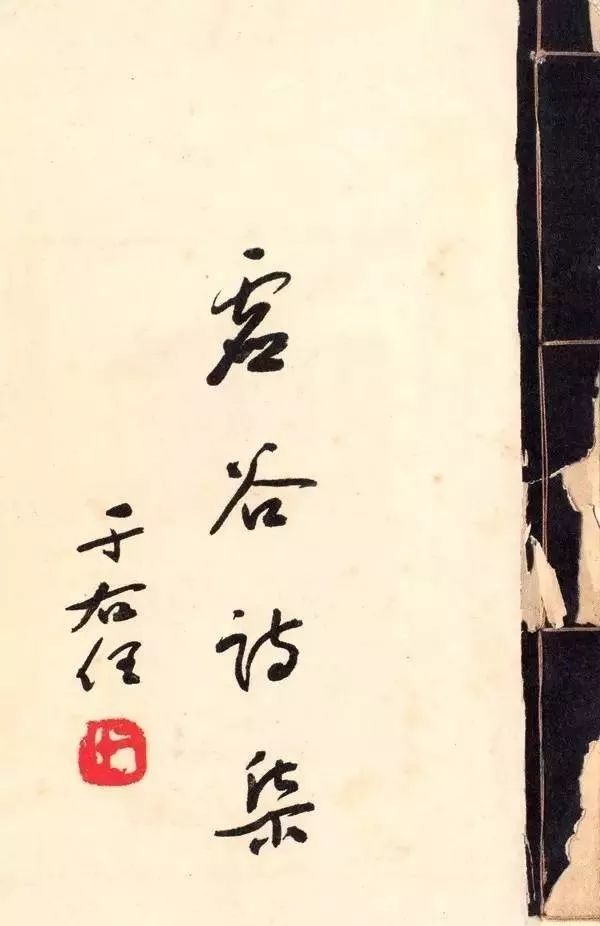 虛谷詩集
于右任